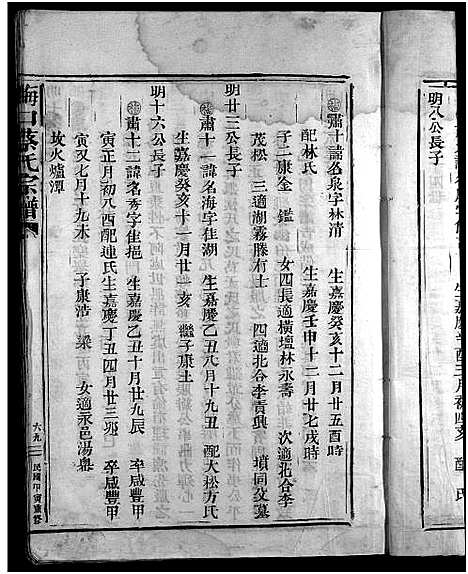 明八公長子
肅十諱名泉字林清　生嘉慶癸亥十二月廿五酉時
配林氏　生嘉慶壬申十二月廿七戌時
子二康金　鑑　女四長適橫壇林永壽　次適北合李
茂松　三適湖霧滕有土　四適北合李貢興　墳同文墓
明廿三公長子
肅十一諱名海字佳湖　生嘉慶乙丑八月十九丑　配大松方氏
生嘉慶癸亥十一月廿一亥　繼子康土
明十六公長子
肅十二諱名秀字佳挹　生嘉慶乙丑十月廿九辰　卒咸豐甲
寅正月初八酉配連氏生嘉慶丁丑四月廿三卯　卒咸豐甲
寅又七月十九未　子康浩　梁　女適永邑湯粵
坟火爐潭
梅口蔡氏宗譜
六九
民國甲寅重修